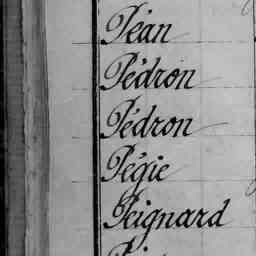 Péan
Pédron
Pédron
Pégie
Peignard